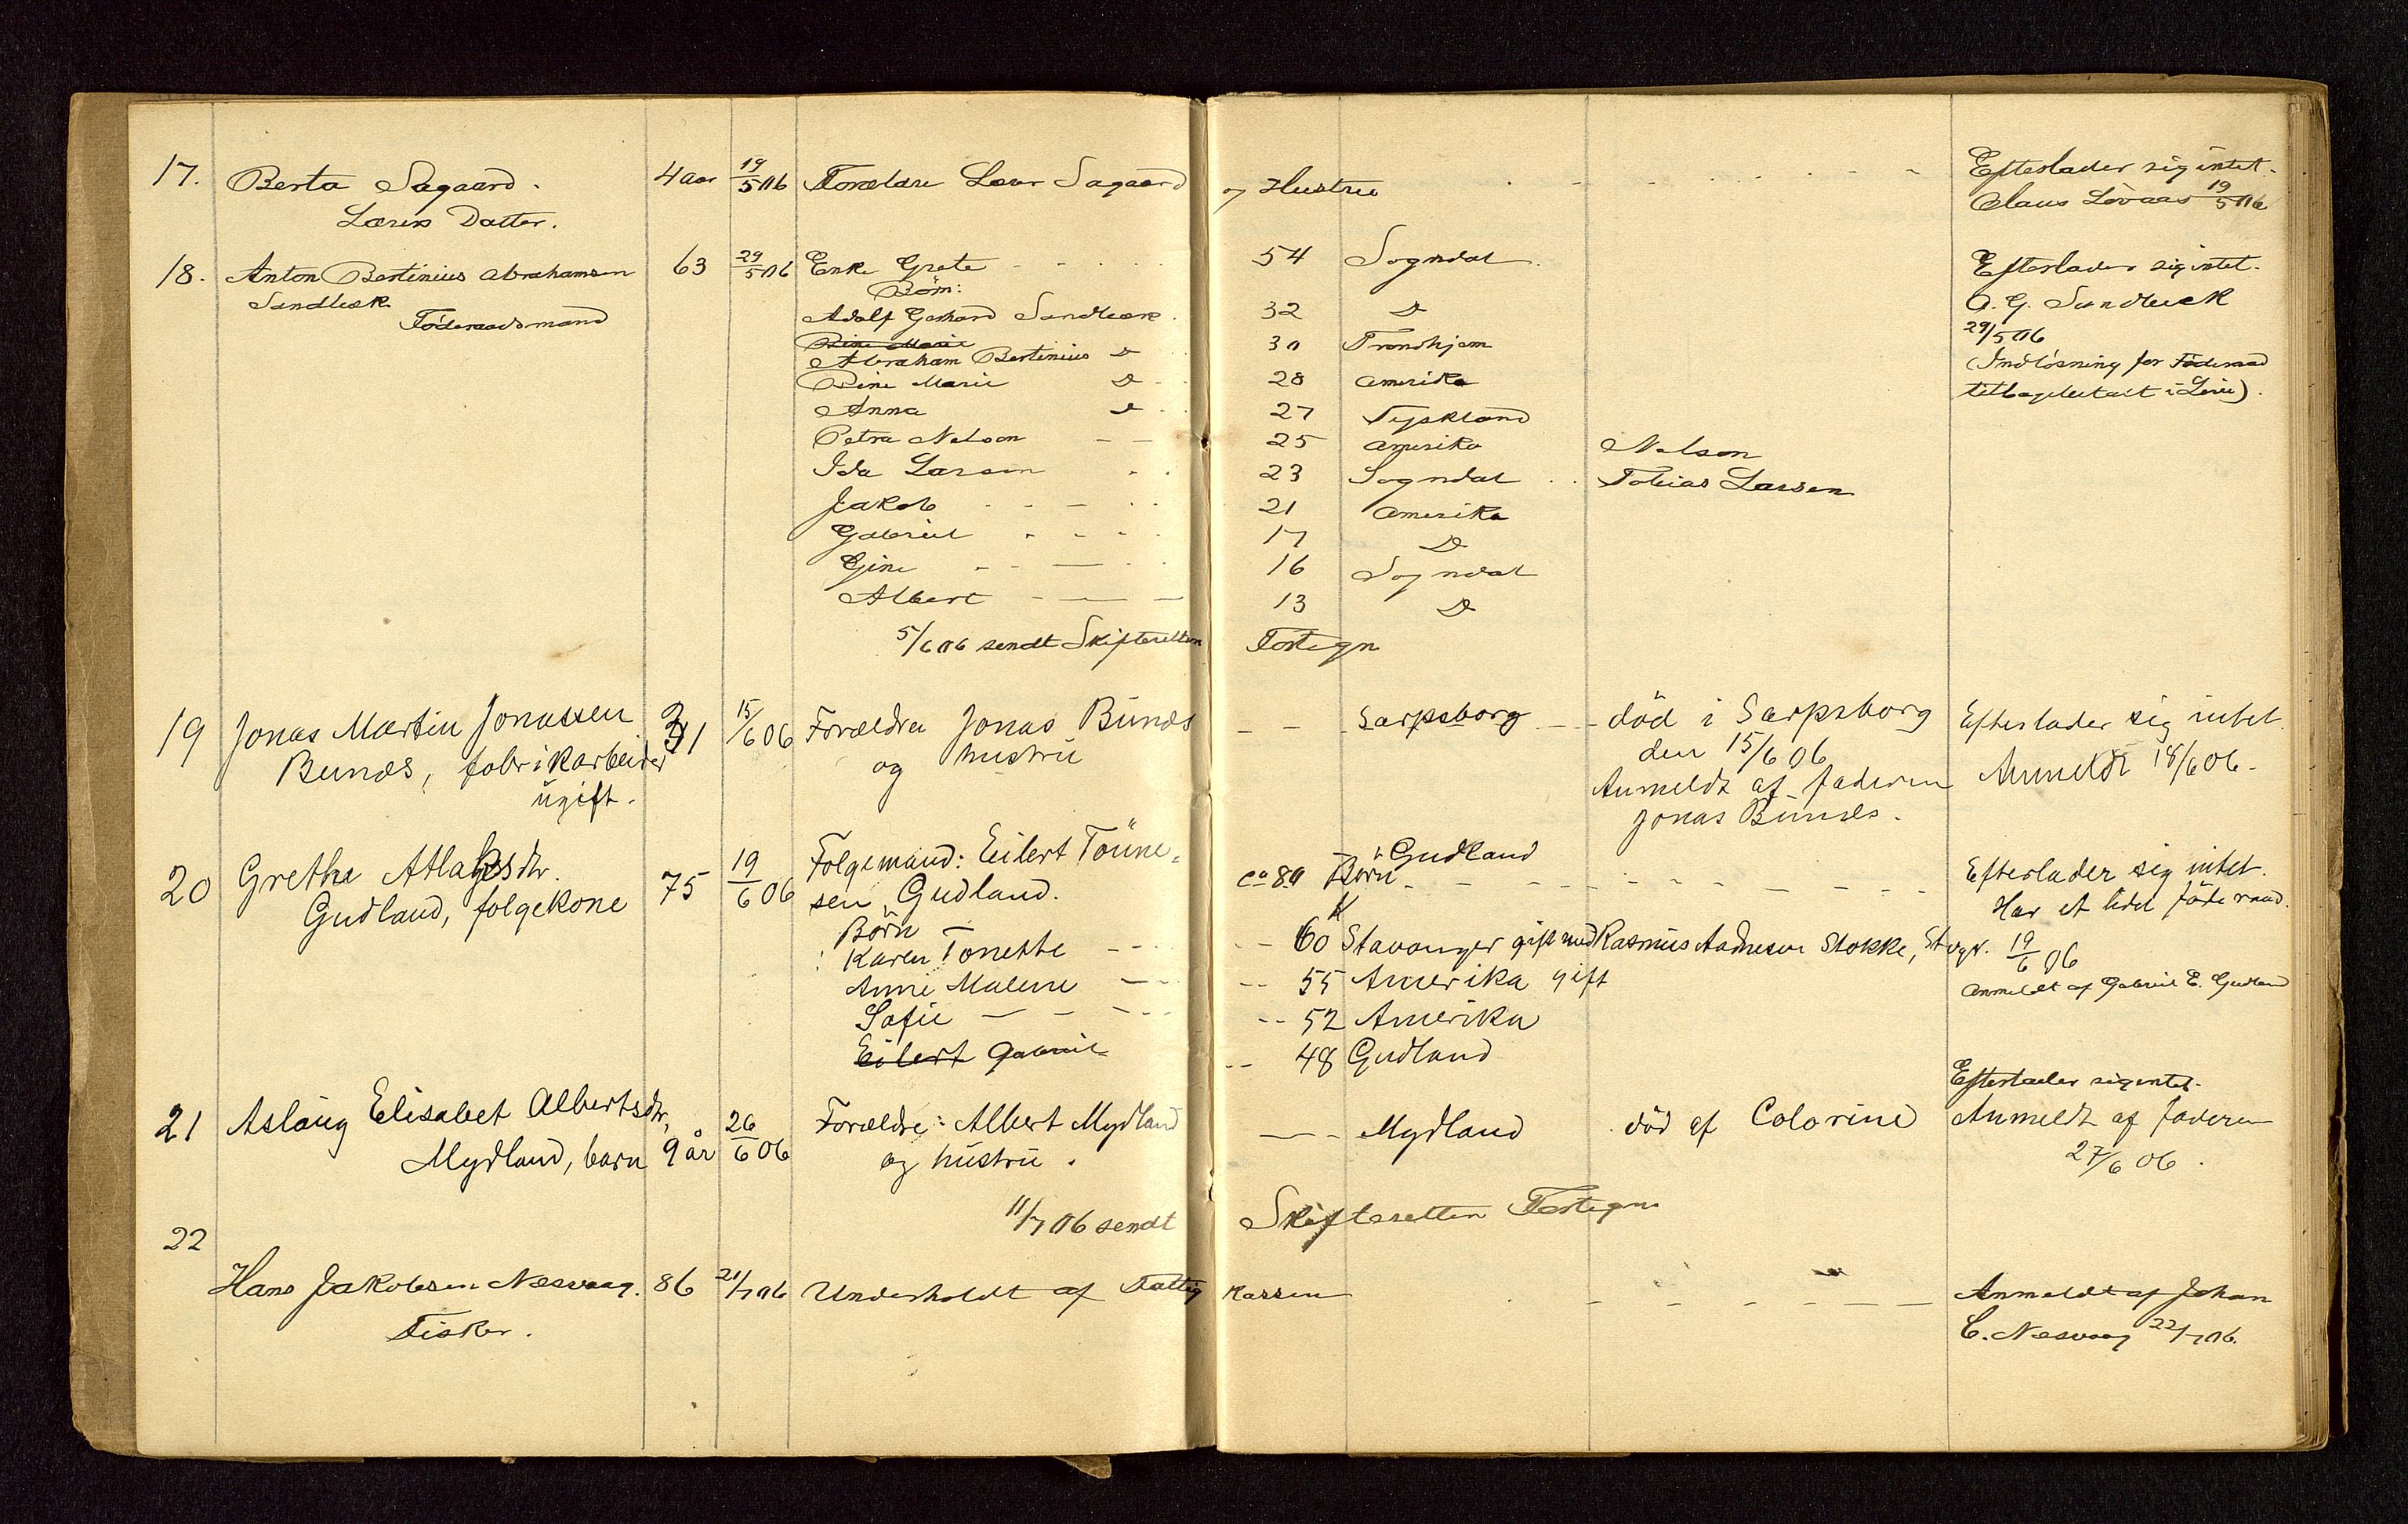 17. Berta Sagaard. 4 aar 19/5 06 Forældre Laur Sagaard og Hustru Efterlader sig intet.
Laurs Datter. Claus Lövaas 19/5 06
18. Anton Bertinius Abrahamsen 63 29/5 06 Enke Grete 54 Sogndal Efterlader sig intet.
Sandbæk Börn: A. G. Sandbeck
Föderaadsmand Adolf Gerhard Sandbæk 32 D 29/5 06
Rine Marie
Abraham Bertinius D 30 Trondhjem (Indlösning for Föderaad
Rine Marie D 28 Amerika tilbagebetalt i Live).
Anna D 27 Tyskland
Petra Nelson 25 Amerika Nelson
Ida Larsen 23 Sogndal Tobias Larsen
Jakob 21 Amerika
Gabriel 17 D
Gine 16 Sogndal
Albert 13 D
5/6 06 sendt Skifteretten Fortegn
19 Jonas Martin Jonassen 31 15/6 06 Forældre Jonas Bunes Sarpsborg död i Sarpsborg Efterlader sig intet.
Bunes, fabrikarbeider og hustru den 15/6 06 Anmeldt 18/6 06.
ugift. Anmeldt af faderen
Jonas Bunes.
20 Grethe Atlagsdtr. 75 19/6 06 Folgemand: Eilert Tönne- ca 80 Gudland Efterlader sig intet.
Gudland, folgekone sen Gudland. Börn Har et lidet föderaad.
Börn
: Karen Tonette 60 Stavanger gift med Rasmus Aadnesen Stokke, Stvgr. 19/6 06
Anne Malene 55 Amerika gift Anmeldt af Gabriel E. Gudland
Sofie 52 Amerika
Eilert Gabriel 48 Gudland
Efterlader sig intet.
21 Aslaug Elisabet Albertsdtr, 26/6 06 Forældre: Albert Mydland Mydland död af Colorine Anmeldt af faderen
Mydland, barn 9 år og hustru. 27/6 06.
11/7 06 sendt Skifteretten Fortegn
22
Hans Jakobsen Nesvaag. 86 21/7 06 Underholdt af Fattigkassen Anmeldt af Johan
Fisker. C. Nesvaag 22/7 06.